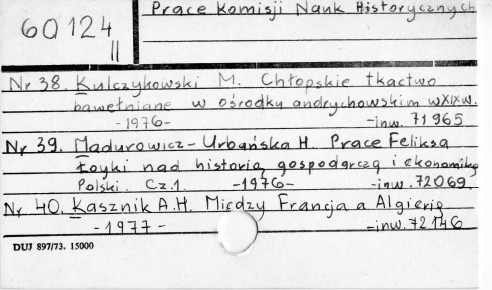 Prace Komisji Nauk Historycznych
60124
II
Nr 38. Kulczykowski M. Chłopskie tkactwo
bawełniane w ośrodku andrychowskim w XIX w.
-1976- -inw. 71965
Nr 39. Madurowicz-Urbańska H. Prace Feliksa
Łoyki nad historią gospodarczą i ekonomiką
Polski. Cz.1. -1976- -inw. 72069.
Nr 40. Kasznik A.H. Między Francją a Algierią
-1977- -inw. 72146
DUJ 897/73. 15000